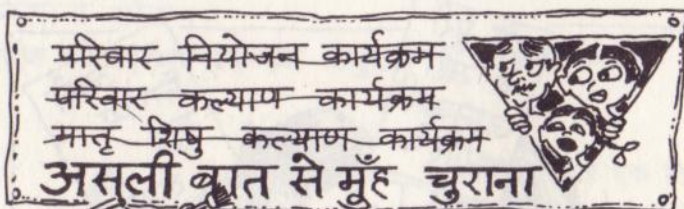 परिवार नियोजन कार्यक्रम
परिवार कल्याण कार्यक्रम
मातृ शिषु कल्याण कार्यक्रम
असली बात से मुँह चुराना